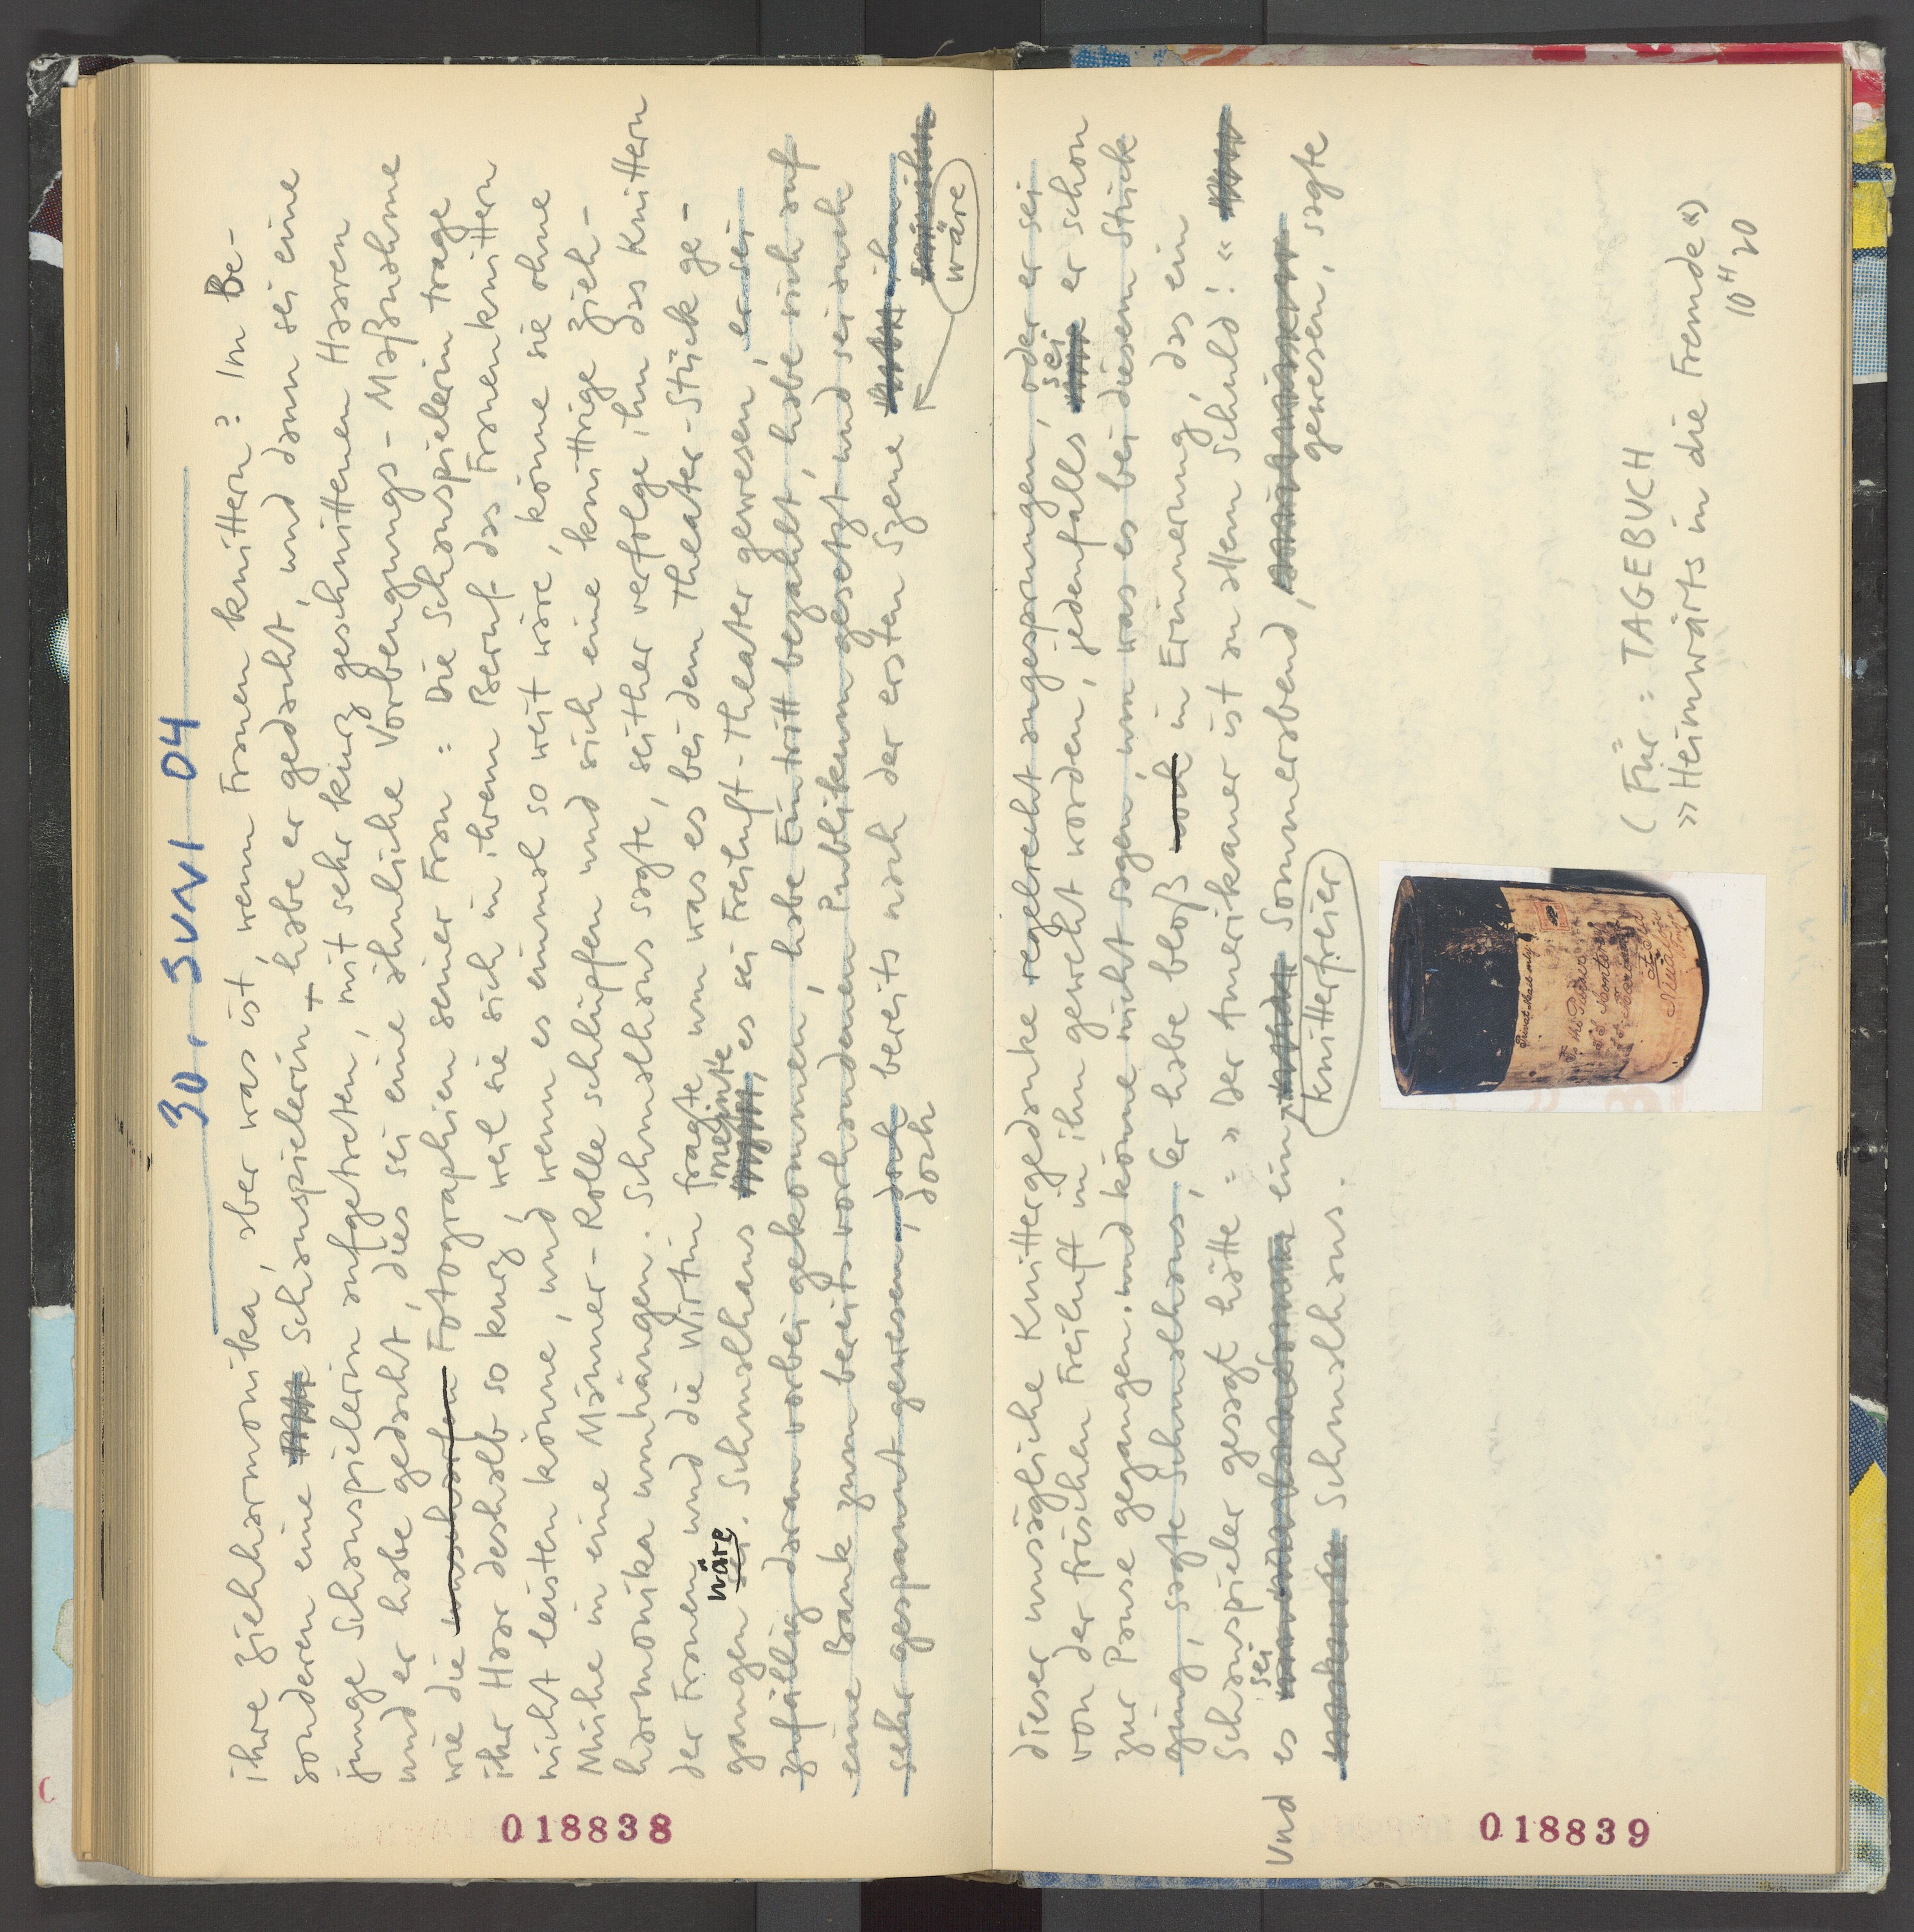 30. JUNI 04
ihre Ziehharmonika, aber was ist, wenn Frauen knittern? Im Be-
sonderen eine Schauspielerin + habe er gedacht, und dann sei eine
junge Schauspielerin aufgetreten, mit sehr kurz geschnittenen Haaren
und er habe gedacht, dies sei eine ähnliche Vorbeugungs-Maßnahme
wie die unscharfen Fotographien seiner Frau: Die Schauspielerin trage
ihr Haar deshalb so kurz, weil sie sich in ihrem Beruf das Frauenknittern
nicht leisten könne, und wenn es einmal so weit wäre, könne sie ohne
Mühe in eine Männer-Rolle schlüpfen und sich eine knittrige Zieh-
harmonika umhängen. Schmalhans sagte, seither verfolge ihn das Knittern
der Frauen und die Wirtin fragte um was es bei dem Theater-Stück ge-
wäre meinte
gangen sei. Schmalhans , es sei Freiluft-Theater gewesen, er sei
zufällig daran vorbei gekommen, habe Eintritt bezahlt, habe sich auf
eine Bank zum bereits vorhandenen Publikum gesetzt und sei auch
sehr gespannt gewesen, doch bereits nach der ersten Szene ihm
doch
wäre
018838
dieser unsägliche Knittergedanke regelrecht angesprungen, oder er sei
sei
von der frischen Freiluft in ihn geweht worden, jedenfalls er schon
zur Pause gegangen. und könne nicht sagen, um was es bei diesem Stück
ging, sagte Schmalhans, Er habe bloß noch in Erinnerung, das ein
Schauspieler gesagt hätte: »Der Amerikaner ist an allem Schuld!«
sei
Und es ein Sommerabend,
knitterfreier
gewesen, sagte
Schmalhans.
Privat Mails only
(Für: TAGEBUCH
»Heimwärts in die Fremde«)
10 H 20
018839